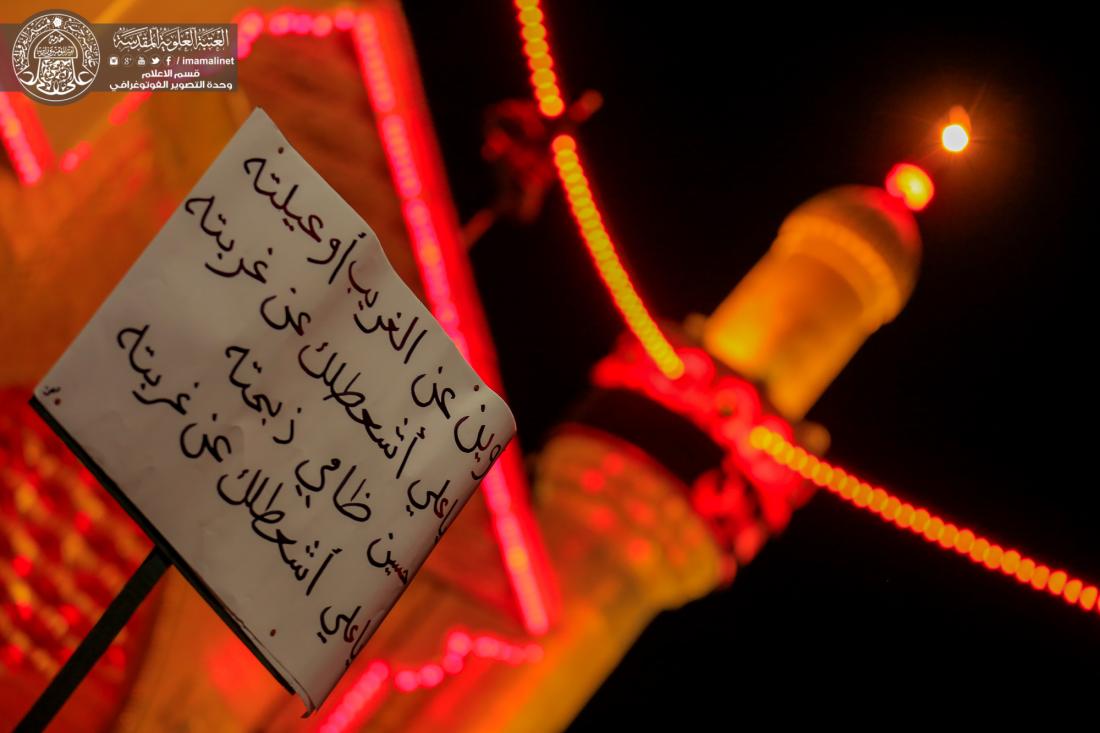 العتبة العلوية المقدسة
/ imamalinet
قسم الاعلام
وحدة التصوير الفوتوغرافي
وين عن الغريب أوعيلته
ياعلي أشعطلك عن غربته
حسين ظامي ذبحته
ياعلي أشعطلك عن غربته